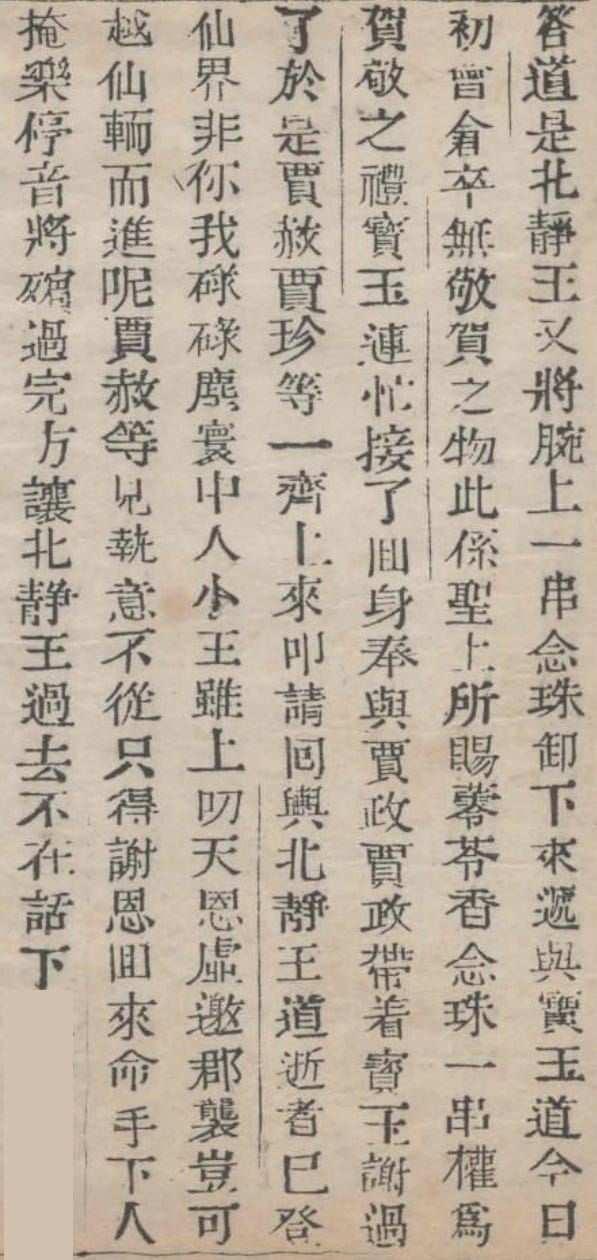 答道是北靜王又將腕上一串念珠卸下來遞與寶玉道今日
初會倉卒無敬賀之物此係聖上所賜蕶苓香念珠一串權爲
賀敬之禮寳玉連忙接了囬身奉與賈政賈政帶着寳玉謝過
了於是賈赦賈珍等一齊上來叩請回輿北靜王道逝者已登
仙界非你我碌碌塵寰中人小王雖上叨天恩虛邀郡襲豈可
越仙輀而進呢賈赦等見執意不從只得謝恩囬來命手下人
掩樂停音將殯過完方讓北靜王過去不在話下